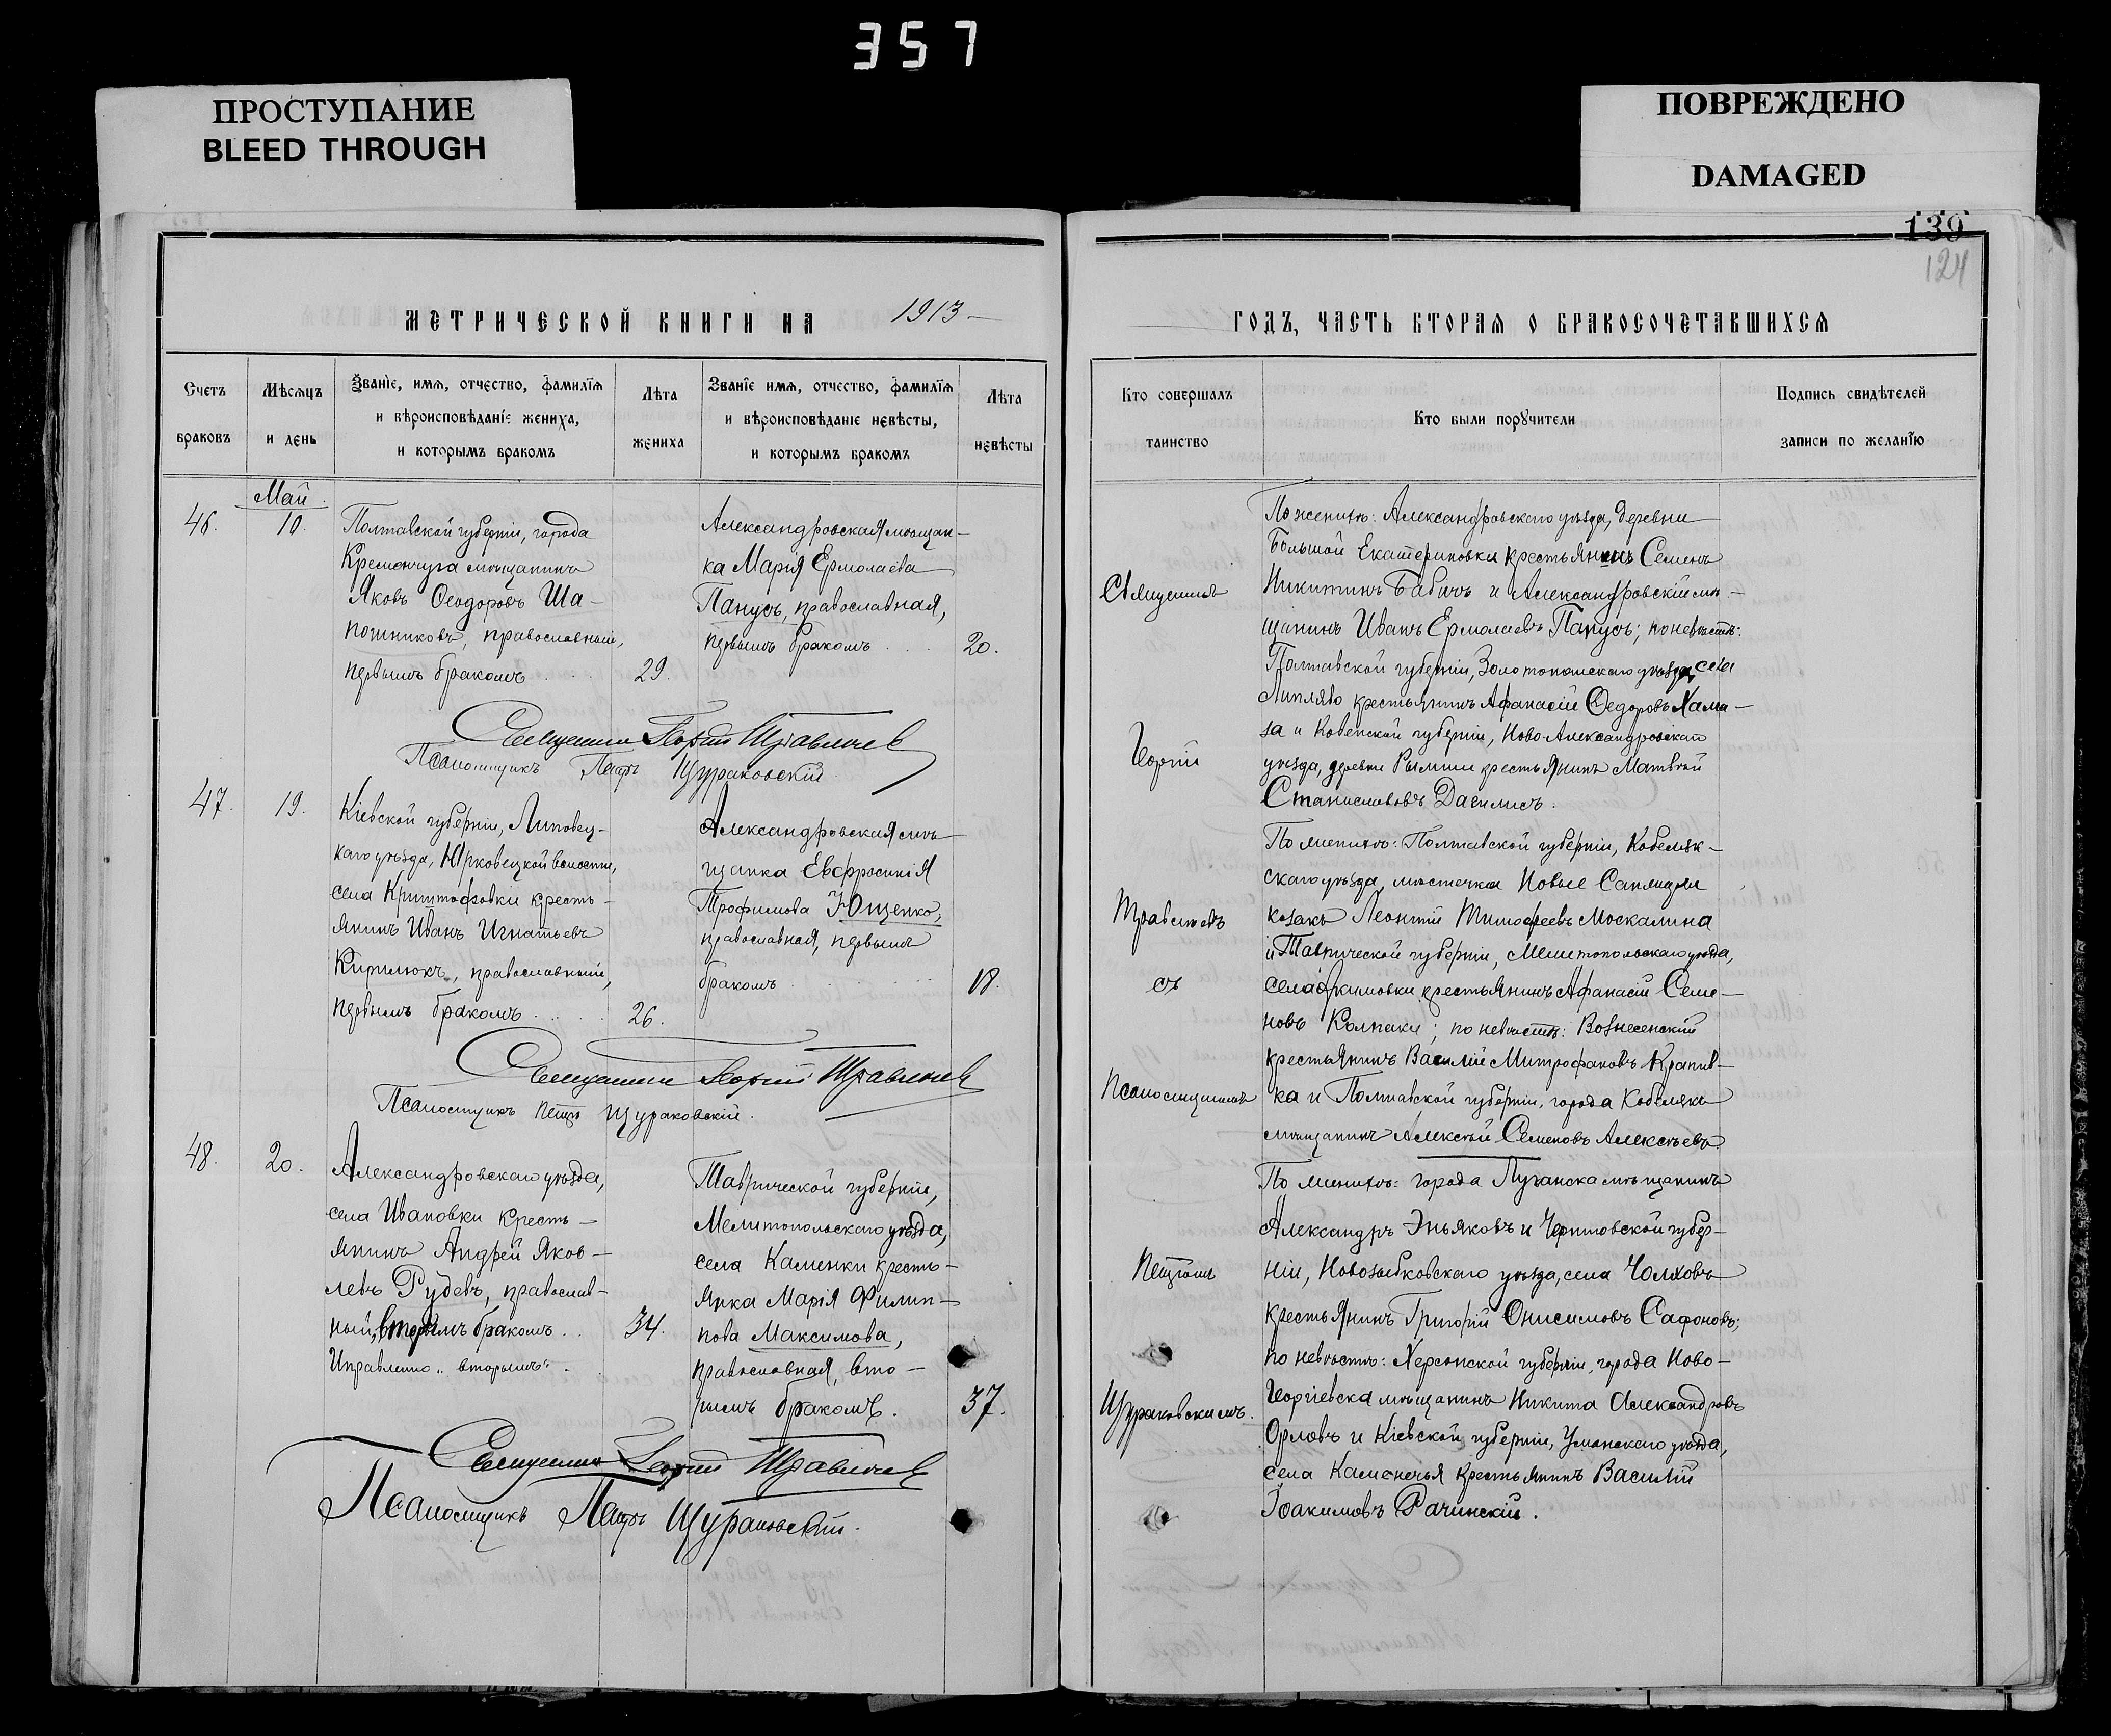 357
ПРОСТУПАНИЕ
BLEED THROUGH
ПОВРЕЖДЕНО
DAMAGED
139
124
МЕТРИЧЕСКОЙ КНИГИ НА 1913
Счетъ браковъ
Мѣсяцъ и день
Званіе, имя, отчество, фамилія
и вѣроисповѣданіе жениха,
и которымъ бракомъ
Лѣта жениха
Званіе имя, отчество, фамилія
и вѣроисповѣданіе невѣсты,
и которымъ бракомъ
Лѣта невѣсты
Май
46.
10.
Полтавской губерніи, города
Кременчуга мѣщанинъ
Яковъ Ѳеодоровъ Ша-
пошниковъ, православный,
первымъ бракомъ
29.
Александровская мѣщан-
ка Марія Ермолаева
Панусъ, православная,
первымъ бракомъ
20.
Священникъ Георгій Травличев
Псаломщикъ Петръ Щураковскій
47.
19.
Кіевской губерніи, Липовец-
каго уѣзда, Юрковецкой волости,
села Криштофовки кресть-
янинъ Иванъ Игнатьевъ
Кирилюкъ, православный,
первымъ бракомъ
26.
Александровская мѣ-
щанка Евфросинія
Трофимова Ющенко,
православная, первымъ
бракомъ
18.
Священникъ Георгій
Псаломщикъ Петръ Щураковскій.
48.
20.
Александровскаго уѣзда,
села Ивановки кресть-
янинъ Андрей Яков-
левъ Рудевъ, православ-
ный, вторымъ бракомъ
Исправлено „вторымъ".
34.
Таврической губерніи,
Мелитопольскаго уѣзда,
села Каменки кресть-
янка Марія Филип-
пова Максимова,
православная, вто-
рымъ бракомъ.
37.
Священникъ Георгій
Псаломщикъ Петръ Щураковскій.
ГОДЪ, ЧАСТЬ ВТОРАЯ О БРАКОСОЧЕТАВШИХСЯ
Кто совершалъ таинство
Кто были поручители
Подпись свидѣтелей
записи по желанію
Священникъ
Георгій
съ
Псаломщикомъ
Петромъ
Щураковскимъ.
По женихѣ: Александровскаго уѣзда, деревни
Большой Екатериновки крестьянинъ Семенъ
Никитинъ Бабичъ и Александровскій мѣ-
щанинъ Иванъ Ермолаевъ Панусъ; по невѣстѣ:
Полтавской губерніи, Золотоношскаго уѣзда, села
Липляво крестьянинъ Афанасій Ѳедоровъ Хама-
за и Ковенской губерніи, Ново-Александровскаго
уѣзда, деревни крестьянинъ Матвѣй
Станиславовъ Дагилисъ.
По женихѣ: Полтавской губерніи, Кобеляк-
скаго уѣзда, мѣстечка Новые Санжары
козакъ Леонтій Тимофеевъ Москалина
и Таврической губерніи, Мелитопольскаго уѣзда,
села Акимовки крестьянинъ Афанасій Семе-
новъ Колпаки; по невѣстѣ: Вознесенскій
крестьянинъ Василій Митрофановъ Крапив-
ка и Полтавской губерніи, города Кобеляки
мѣщанинъ Алексѣй Семеновъ Алексѣевъ.
По женихѣ: города Луганска мѣщанинъ
Александръ Эньяковъ и Черниговской губер-
ніи, Новозыбковскаго уѣзда, села Чолховъ
крестьянинъ Григорій Онисимовъ Сафоновъ;
по невѣстѣ: Херсонской губерніи, города Ново-
георгіевска мѣщанинъ Никита Александровъ
Орловъ и Кіевской губерніи, Уманскаго уѣзда,
села Каменечья крестьянинъ Василій
Іоакимовъ Рачинскій.